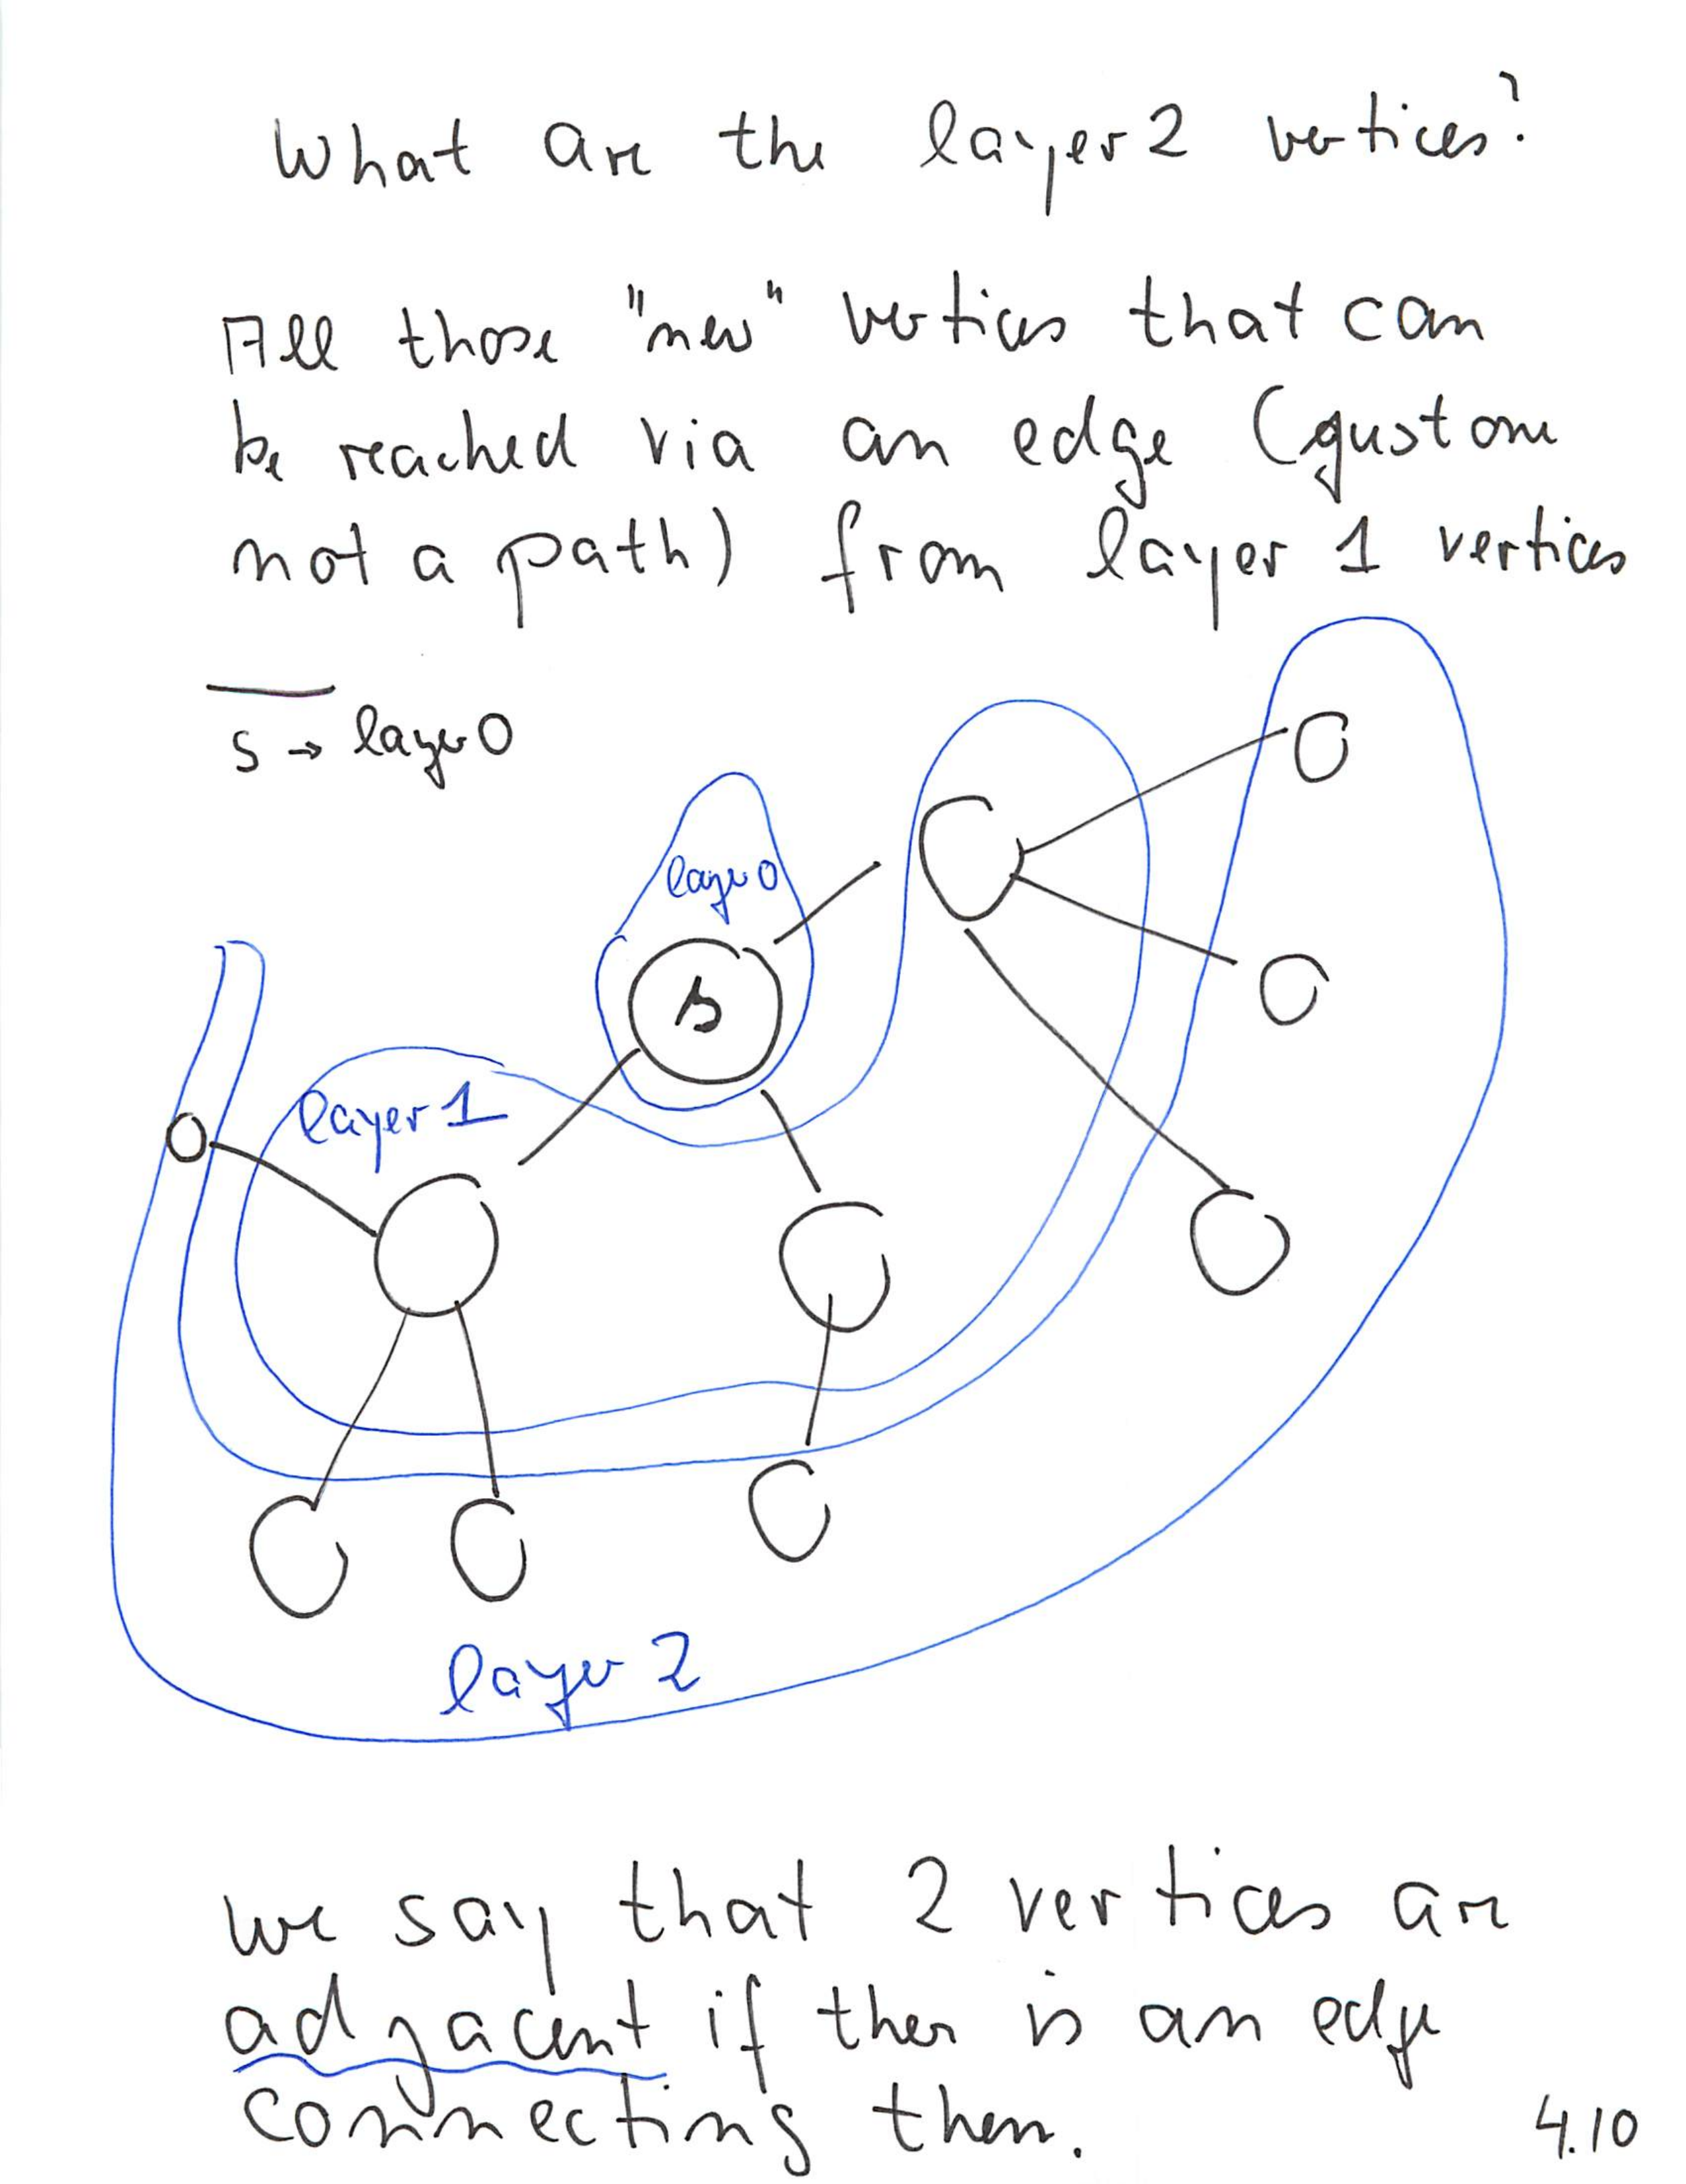 What are the layer 2 vertices?
All those "new" vertices that can
be reached via an edge (just one
not a path) from layer 1 vertices
s → layer 0
layer 0
s
layer 1
layer 2
we say that 2 vertices are
adjacent if there is an edge
connecting them.
4.10